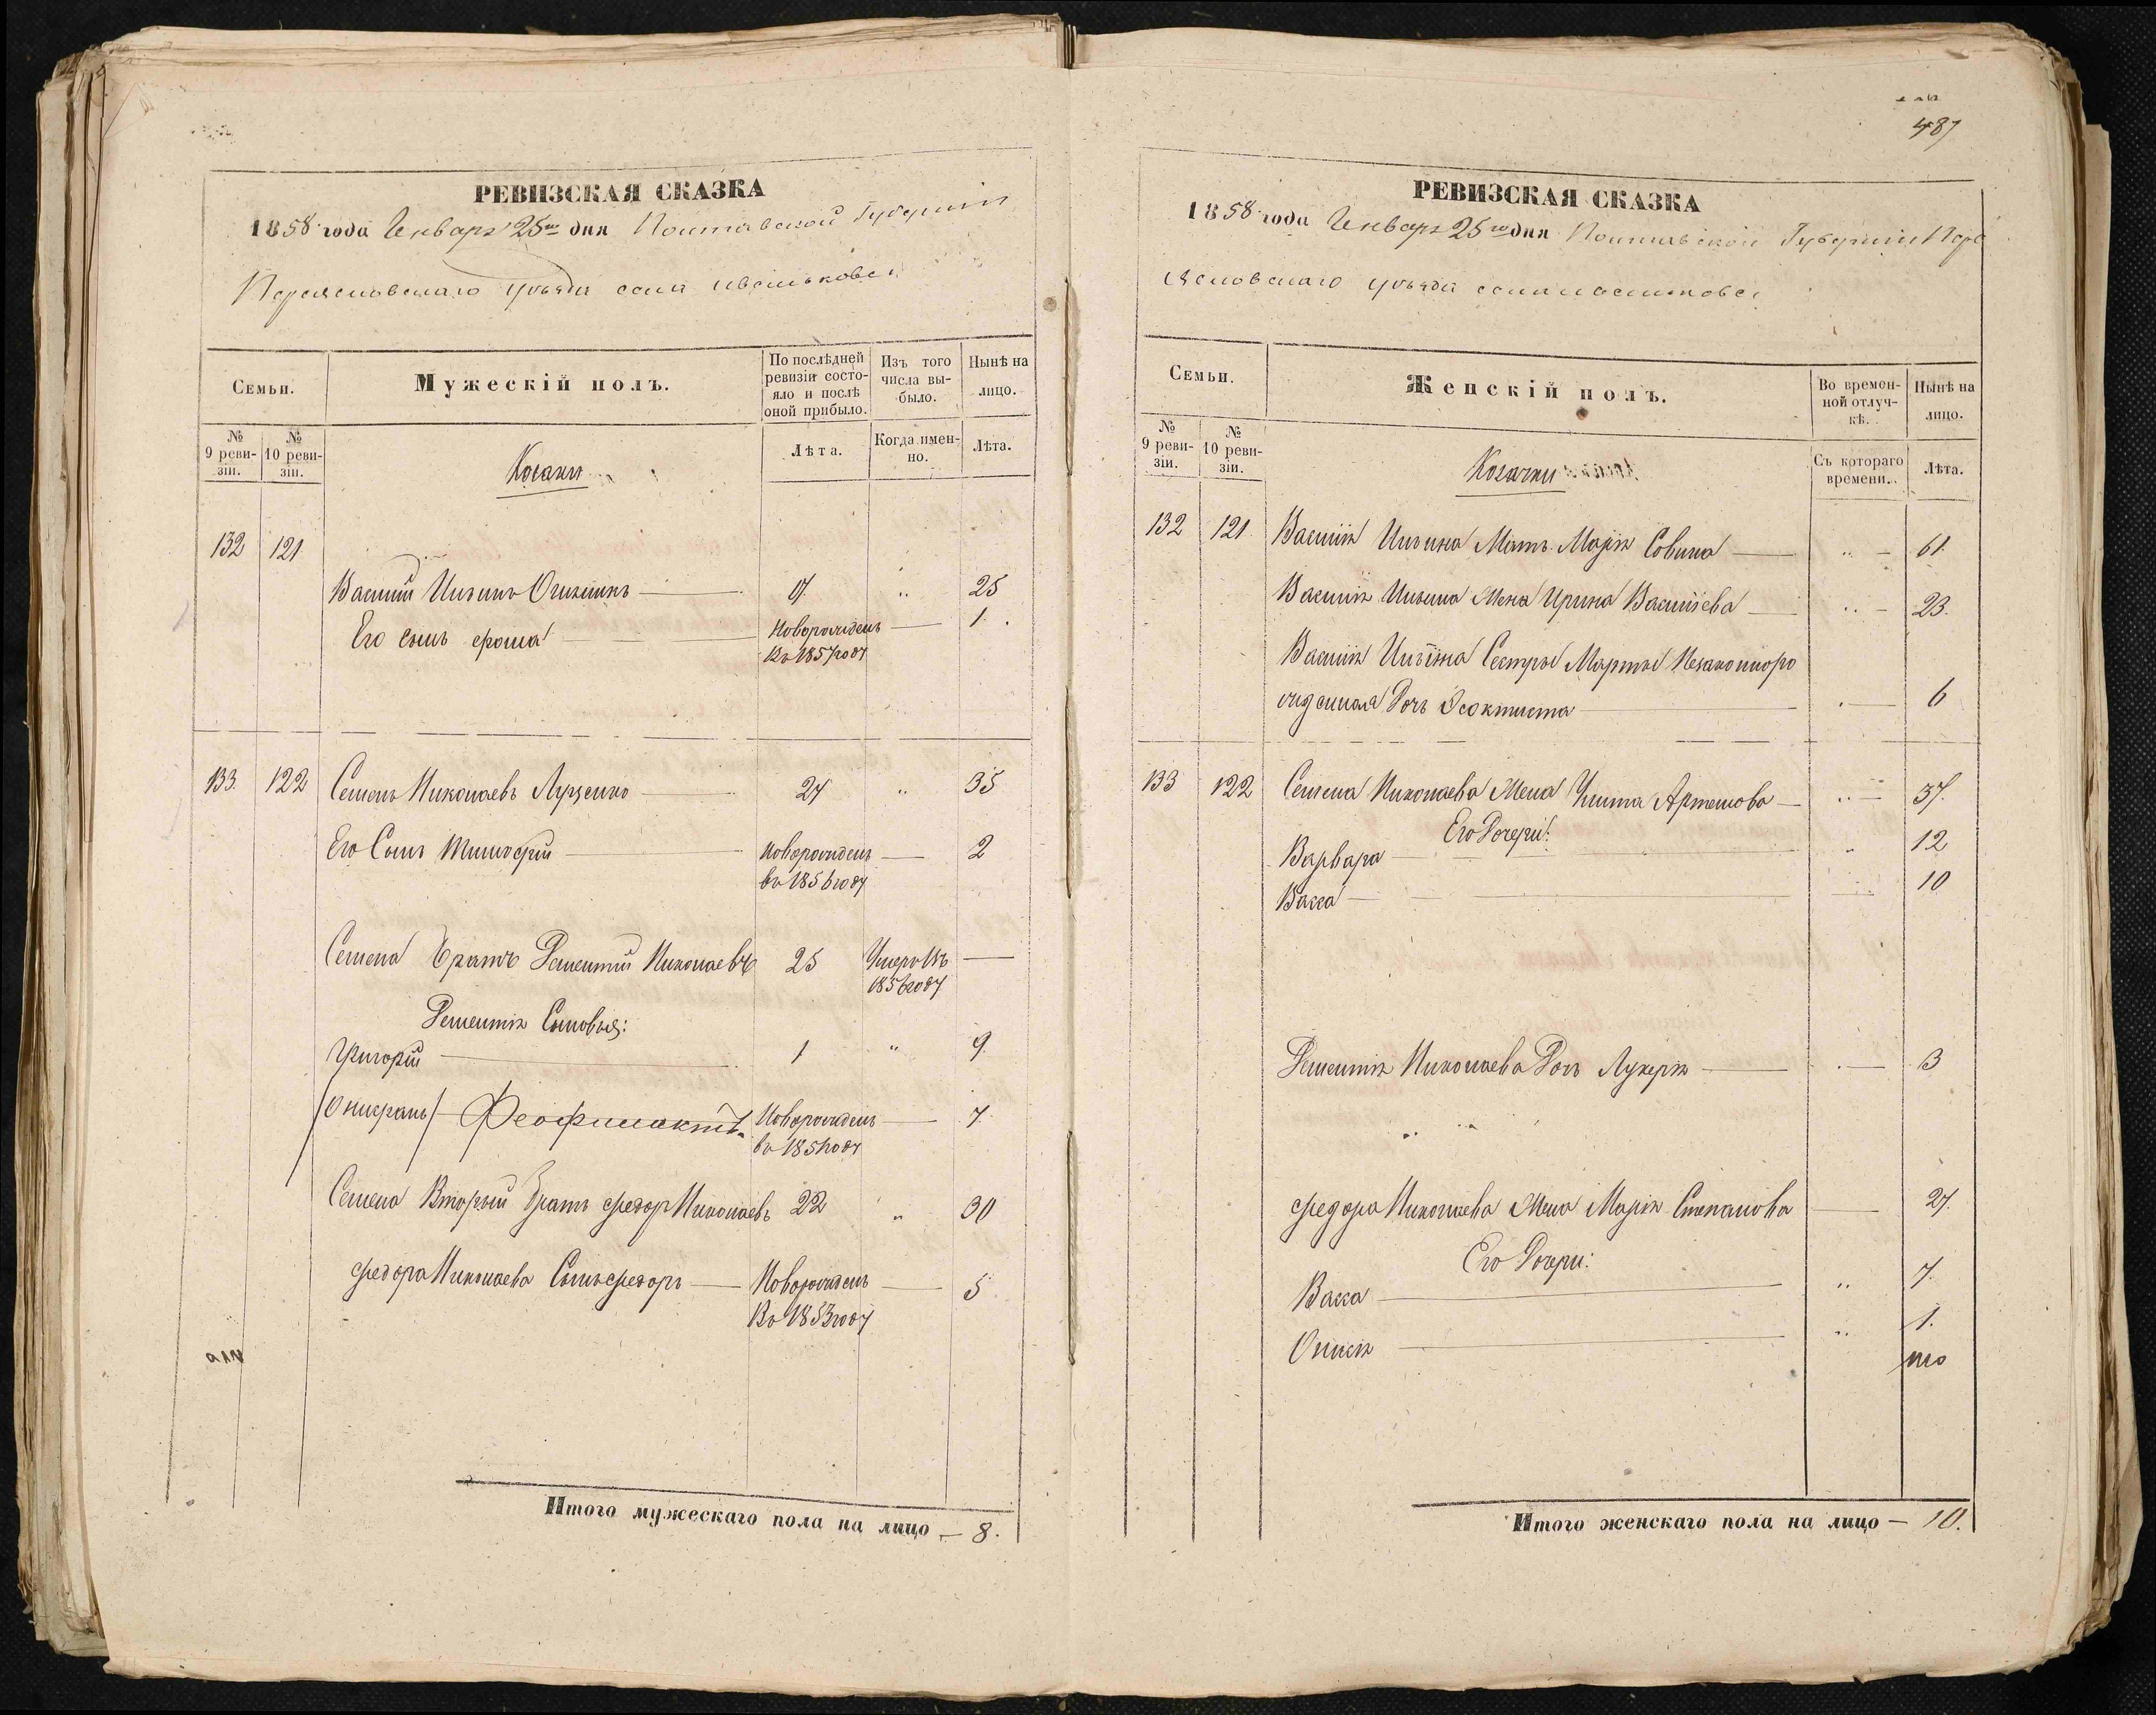 РЕВИЗСКАЯ СКАЗКА
1858 года Генваря 25го дня Полтавской Губерніи
Переясловскаго уѣзда села
Семьи.
Мужескій полъ.
По послѣдней ревизіи состояло и послѣ оной прибыло.
Изъ того числа выбыло.
Нынѣ на лицо.
№ 9 ревизіи.
№ 10 ревизіи.
Козаки
Лѣта.
Когда именно.
Лѣта.
132 121
Василій Ильинъ 25
Его сынъ Новорожденъ 1.
Въ 1857 году
133. 122 Семенъ Николаевъ Луценко 27 " 35
Его Сынъ Тимофей Новорожденъ 2
въ 1856 году
Семена Братъ Дементій Николаевъ 25 Умеръ Въ
1856 году
Дементія Сыновья:
Григорій 1 " 9.
Феофилактъ Новорожденъ 7.
въ 1851 году
Семена Вторый Братъ Федоръ Николаевъ 22 " 30
Федора Николаева Сынъ Федоръ Новорожденъ 5
Въ 1853 году
Итого мужескаго пола на лицо — 8.
487
РЕВИЗСКАЯ СКАЗКА
1858 года Генваря 25го дня Полтавской Губерніи Пере
ясловскаго уѣзда села
Семьи.
Женскій полъ.
Во временной отлучкѣ.
Нынѣ на лицо.
№ 9 ревизіи.
№ 10 ревизіи.
Козачки
Съ котораго времени.
Лѣта.
132 121 Василія Ильина Мать Марія Совина 61.
Василія Ильина Жена Ирина Василіева 23.
Василія Ильина Сестры Марты Незаконноро
жденная Дочь Феоктиста 6
133 122 Семена Николаева Жена Улита Артемова 37.
Его Дочери:
Варвара 12
Васса 10
Дементія Николаева Дочь Лукерія 3
Федора Николаева Жена Марія Степанова 27.
Его Дочери:
Васса 7.
1.
Итого женскаго пола на лицо — 10.